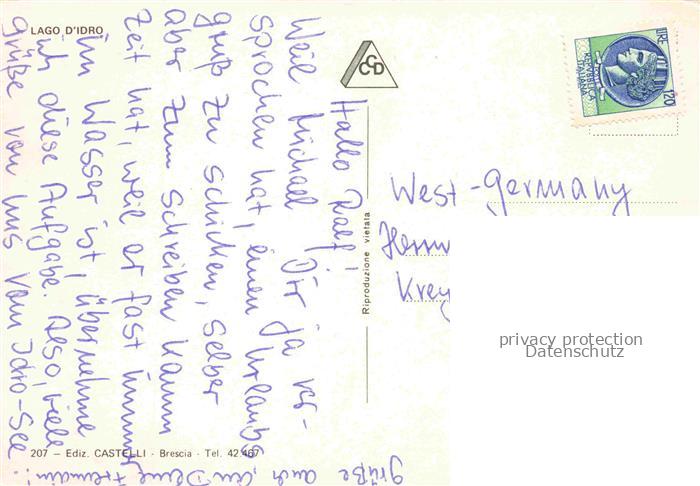 LAGO D'IDRO
Hallo Ralf!
Weil Michael Dir ja ver-
sprochen hat, einen Urlaubs
gruß zu schicken, selber
aber zum schreiben kaum
Zeit hat, weil er fast immer
im Wasser ist, übernehme
ich diese Aufgabe. Also, viele
Grüße von uns vom Idro-See
Grüße auch an Deine !
CCD
Riproduzione vietata
LIRE 120
REPUBBLICA ITALIANA
West-Germany
Herrn
Krey
207 – Ediz. CASTELLI - Brescia - Tel. 42.467
privacy protection
Datenschutz